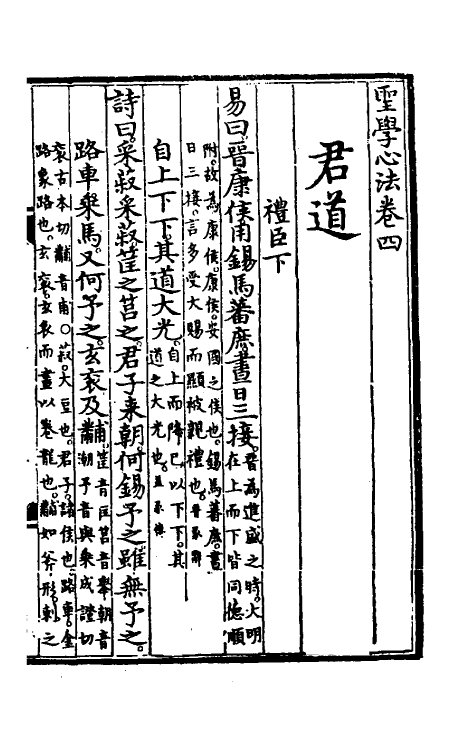 聖學心法卷四
君道
禮臣下
易曰晉康侯用錫馬蕃庶晝日三接晉為進盛之時大明
在上而下皆同德順
附故為康侯康侯安國之侯也錫馬蕃庶晝
日三接言多受大賜而顯被親禮也晉彖辭
自上下下其道大光自上而降已以下下其
道之大光也益彖傳
詩曰采菽采菽筐之筥之君子來朝何錫予之雖無予之
路車乘馬又何予之玄袞及黼筐音匡筥音舉朝音
潮予音與乘成證切
袞古本切黼音甫○菽大豆也君子諸侯也路車金
路象路也玄袞玄衣而畫以卷龍也黼如斧形刺之